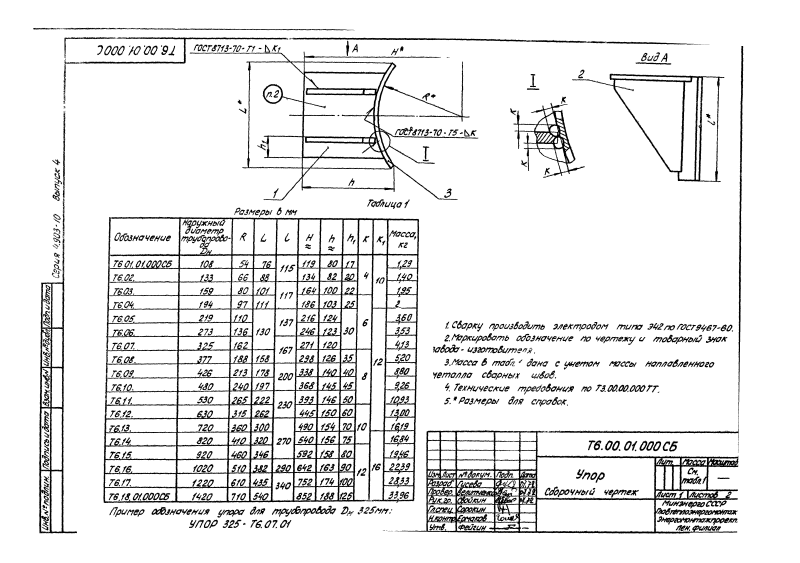 Т6.00.01.000С
ГОСТ8713-70-Т1-К₁
А
Н*
Вид А
п.2
R*
I
2
К
L*
ГОСТ8713-70-Т5-К
h₁
I
К
1
h
3
Серия 4.903-10 Выпуск 4
Размеры в мм
Таблица 1
Обозначение Наружный диаметр трубопровода Dн R L l H ≈ h ≈ h₁ К К₁ Масса, кг
Т6.01.01.000СБ 108 54 76 115 119 80 17 4 10 1,29
Т6.02. 133 66 88 134 82 20 1,40
Т6.03. 159 80 101 117 164 100 22 1,95
Т6.04. 194 97 111 186 103 25 2
Т6.05. 219 110 130 137 216 124 30 6 3,60
Т6.06. 273 136 246 123 3,53
Т6.07. 325 162 167 271 120 12 4,13
Т6.08. 377 188 158 298 126 35 8 5,20
Т6.09. 426 213 178 200 338 140 40 8,80
Т6.10. 480 240 197 368 145 45 9,26
Т6.11. 530 265 222 230 393 146 50 10,93
Т6.12. 630 315 262 445 150 60 13,00
Т6.13. 720 360 300 270 490 154 70 10 16,19
Т6.14. 820 410 320 540 156 75 16,84
Т6.15. 920 460 346 592 158 80 12 16 19,46
Т6.16. 1020 510 382 290 642 163 90 22,39
Т6.17. 1220 610 435 340 752 174 100 28,33
Т6.18.01.000СБ 1420 710 540 852 188 125 33,96
Пример обозначения упора для трубопровода Dн 325мм:
УПОР 325 - Т6.07.01
1. Сварку производить электродом типа Э42 по ГОСТ 9467-60.
2. Маркировать обозначение по чертежу и товарный знак
завода-изготовителя.
3. Масса в табл. 1 дана с учетом массы наплавленного
металла сварных швов.
4. Технические требования по Т3.00.00.000ТТ.
5.* Размеры для справок.
Т6.00.01.000 СБ
Упор
Сборочный чертеж
Лит. Масса Масштаб
См. табл.1 —
Лист 1 Листов 2
Минэнерго СССР
Главтеплоэнергомонтаж
Энергомонтажпроект
Лен. филиал
Изм. Лист № докум. Подп. Дата
Разраб. Гусева
Провер.
Рук.гр.
Гл.спец. Сорокин
Н.контр. Ермаков
Утв. Фейгин
Инв.№ подлин. Подпись и дата Взам.инв.№ Инв.№ дубл. Подп. и дата